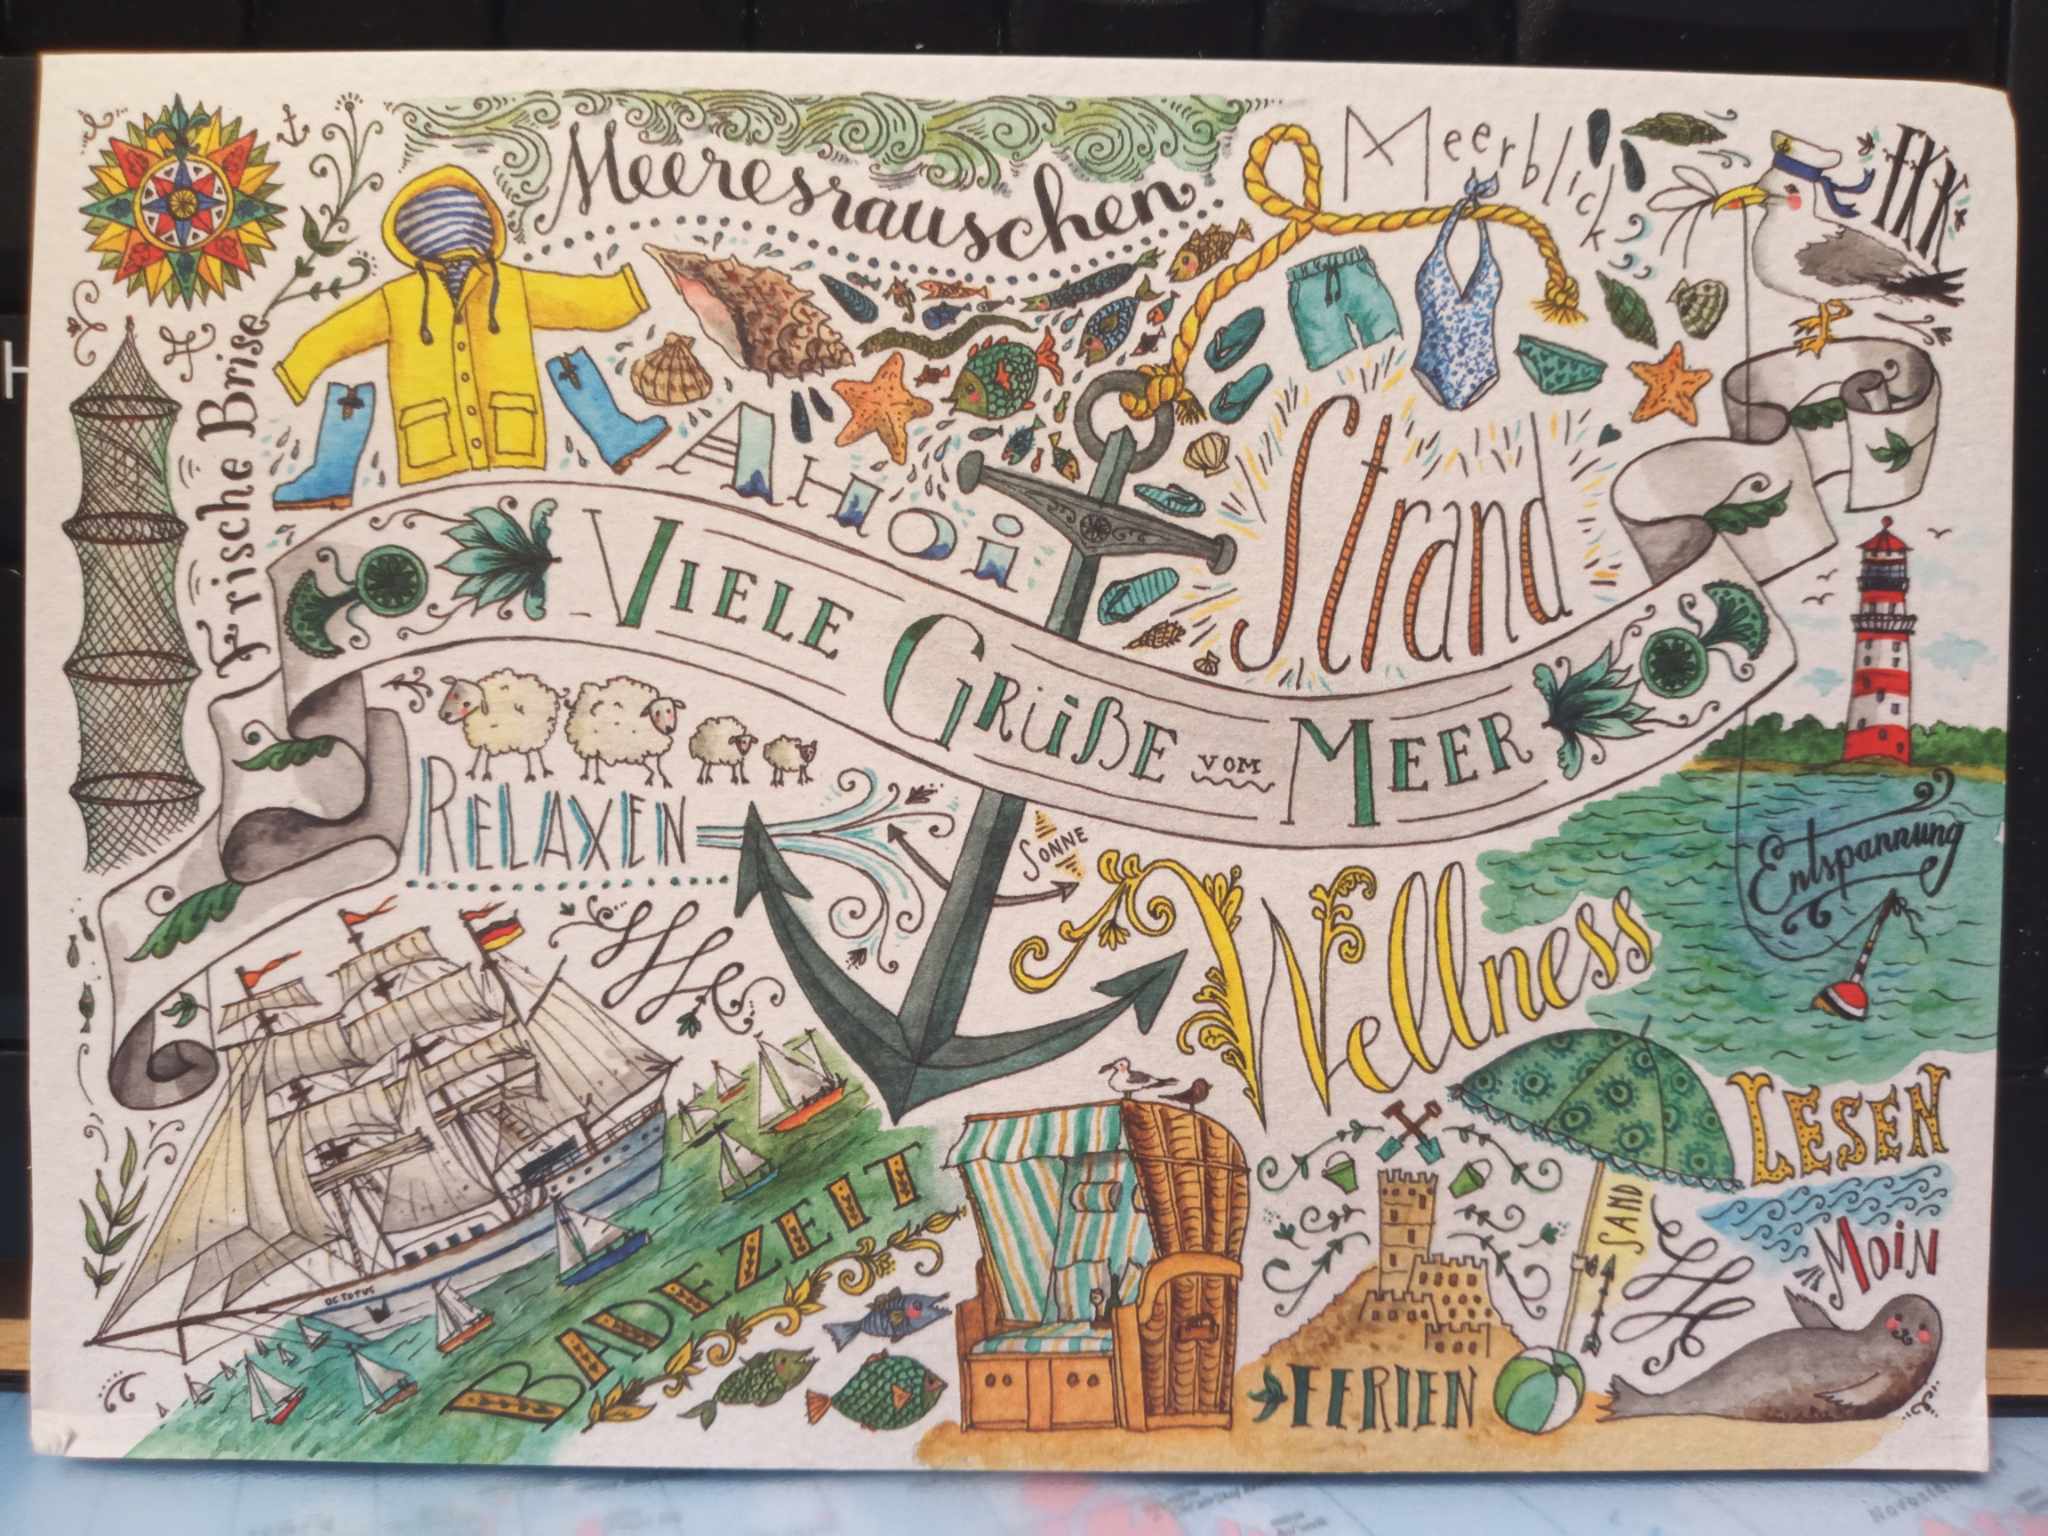 Meeresrauschen
Meerblick
FKK
Frische Brise
AHOI
Strand
VIELE GRÜßE VOM MEER
RELAXEN
SONNE
Entspannung
Wellness
LESEN
SAND
MOIN
BADEZEIT
FERIEN
H